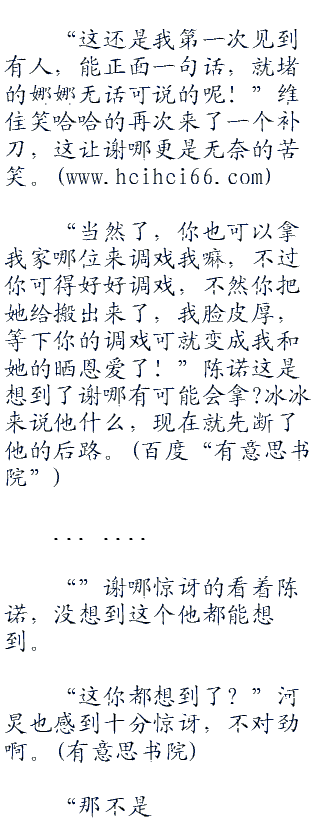 “这还是我第一次见到
有人，能正面一句话，就堵
的娜娜无话可说的呢！”维
佳笑哈哈的再次来了一个补
刀，这让谢哪更是无奈的苦
笑。(www.hcihci66.com)
“当然了，你也可以拿
我家哪位来调戏我嘛，不过
你可得好好调戏，不然你把
她给搬出来了，我脸皮厚，
等下你的调戏可就变成我和
她的晒恩爱了！”陈诺这是
想到了谢哪有可能会拿?冰冰
来说他什么，现在就先断了
他的后路。(百度“有意思书
院”)
... ....
“”谢哪惊讶的看着陈
诺，没想到这个他都能想
到。
“这你都想到了？”河
炅也感到十分惊讶，不对劲
啊。(有意思书院)
“那不是